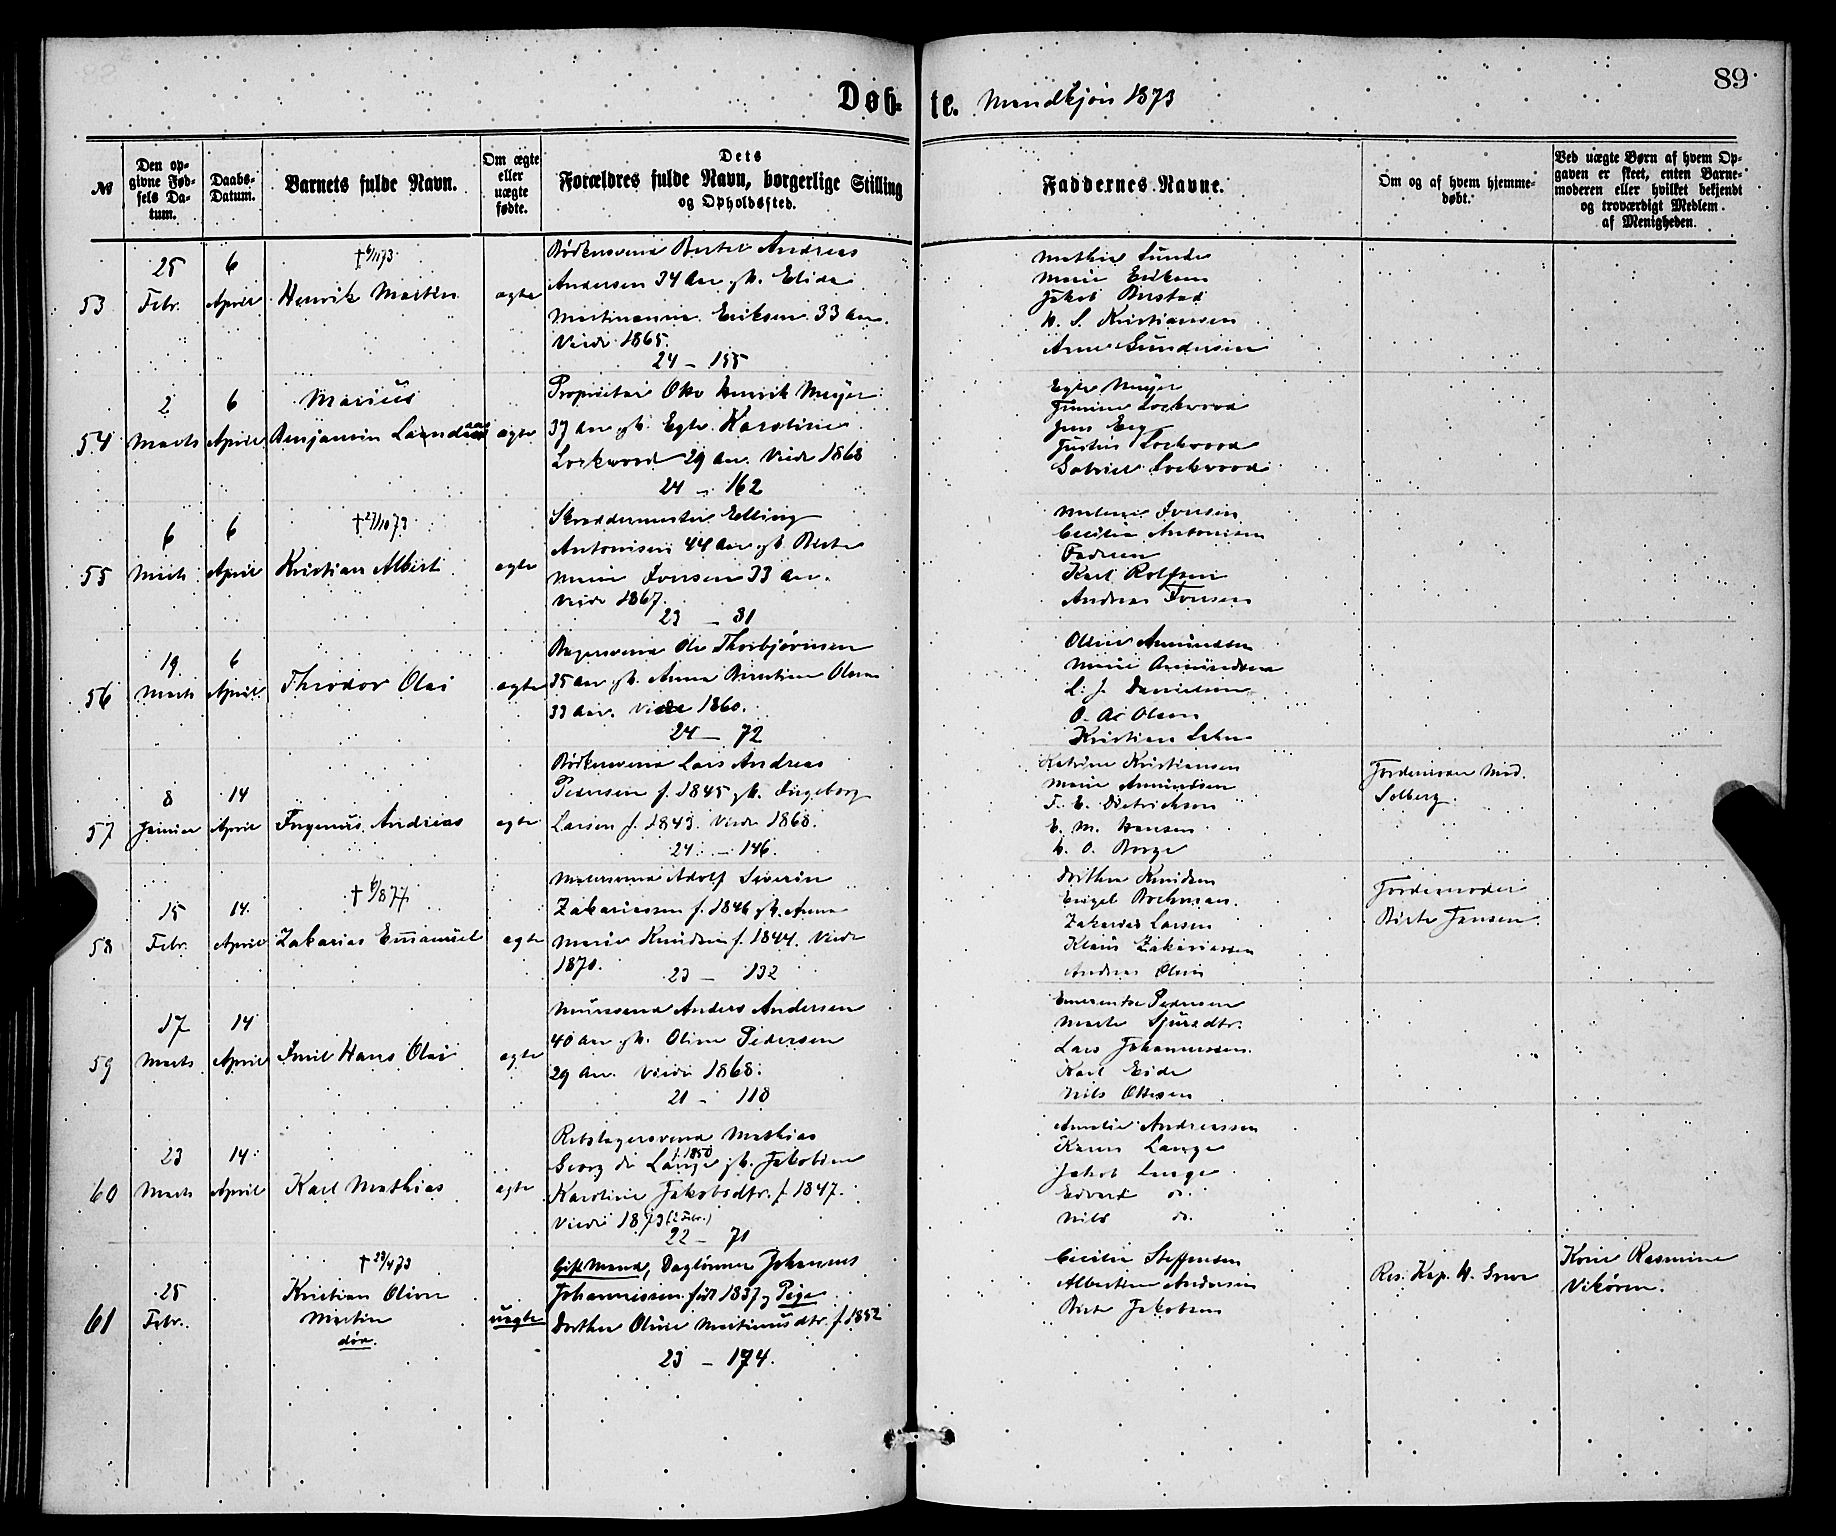 89
Døb- te. Mandkjøn 1873
№
Den op-
givne Fød-
sels Da-
tum.
Daabs-
Datum.
Barnets fulde Navn.
Om ægte
eller
uægte
fødte.
Dets
Forældres fulde Navn, borgerlige Stilling
og Opholdssted.
Faddernes Navne.
Om og af hvem hjemme-
døbt.
Ved uægte Børn af hvem Op-
gaven er skeet, enten Barne-
moderen eller hvilket bekjendt
og troværdigt Medlem
af Menigheden.
53
25
Febr.
6
April
† 6/11 73
Henrik Martin
ægte
Bødkersvend Andreas
Andersen 34 Aar gb. Elida
Martinanna Eriksen 33 Aar.
Viede 1865.
24 – 155
Mathea Sunde
Marie Eriksen
Jakob
Kristiansen
Arne Gundersen
54
2
Marts
6
April
Marius
Benjamin
ægte
Proprietær Otto Henrik Meyer
37 Aar gb. Egle Karoline
Lockwood 29 Aar. Viede 1868
24 – 162
Egle Meyer
Lockwood
Jens
Justus Lockwood
Gabriel Lockwood
55
6
Marts
6
April
† 27/10 73
Kristian Albert
ægte
Skræddermester Elling
Antonisen 44 Aar gb. Birte
Marie Iversen 33 Aar.
Viede 1867.
23 – 81
Iversen
Cecilia Antonisen
Faderen
Karl Rolfsen
Andreas Iversen
56
19.
Marts
6
April
Theodor Olai
ægte
Bagersvend Ole Thorbjørnsen
35 Aar gb. Anna Olsen
33 Aar. Viede 1860.
24 – 72
Amundsen
Marie Amundsen
L. J. Danielsen
Olsen
Kristian
57
8
Januar
14
April
Ingenus Andreas
ægte
Bødkersvend Lars Andreas
Pedersen f. 1845 gb. Ingeborg
Larsen f. 1843. Viede 1868.
24 – 146.
Katrine Kristiansen
Marie Amundsen
T. E. Dietrichson
E. M. Hansen
O. Borge
Jordemoder Mad.
Solberg.
58
15
Febr.
14.
April
† 6/8 77
Zakarias Emanuel
ægte
Malersvend Adolf Severin
Zakariassen f. 1846 gb. Anna
Marie Knudsen f. 1844. Viede
1870.
23 – 132
Dorthea Knudsen
Engel
Zakarias Larsen
Klaus Zakariassen
Andreas Olsen
Jordemoder
Birte Jansen
59
17
Marts
14
April
Emil Hans Olai
ægte
Murersvend Anders Andersen
40 Aar gb. Oline Pedersen
29 Aar. Viede 1868.
21 – 118
Emerentse Pedersen
Marta Sjursdtr.
Lars Johannessen
Karl Eide
Nils Ottesen
60
23
Marts
14.
April
Karl Mathias
ægte
Rebslagersvend Mathias
Georg de Lange f. 1850 gb. Jakobine
Karoline Jakobsdtr. f. 1847.
Viede 1873 (2 Febr.)
22 – 71
Amalie Andreassen
Karen Lange
Jakob Lange
Edvard do.
Nils do.
61
25
Febr.
† 28/4 73
Kristian Oliver
Martin
død.
uægte
Gift Mand, Dagløner Johannes
Johannessen født 1837 og Pige
Dorthea Oline Martinusdtr. f. 1852
23 – 174.
Cecilie Steffensen
Albertine Andersen
Birte Jakobsen
Res. Kap. W. Greve
Kone Rasmine
Vikøren.